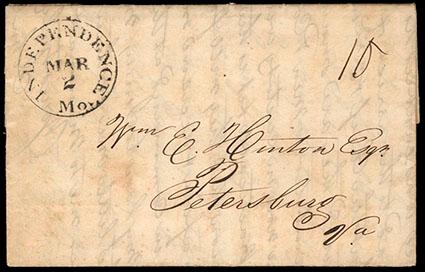 INDEPENDENCE
MAR
2
Mo.
10
Wm E. Hinton Esqr.
Petersburg
Va.